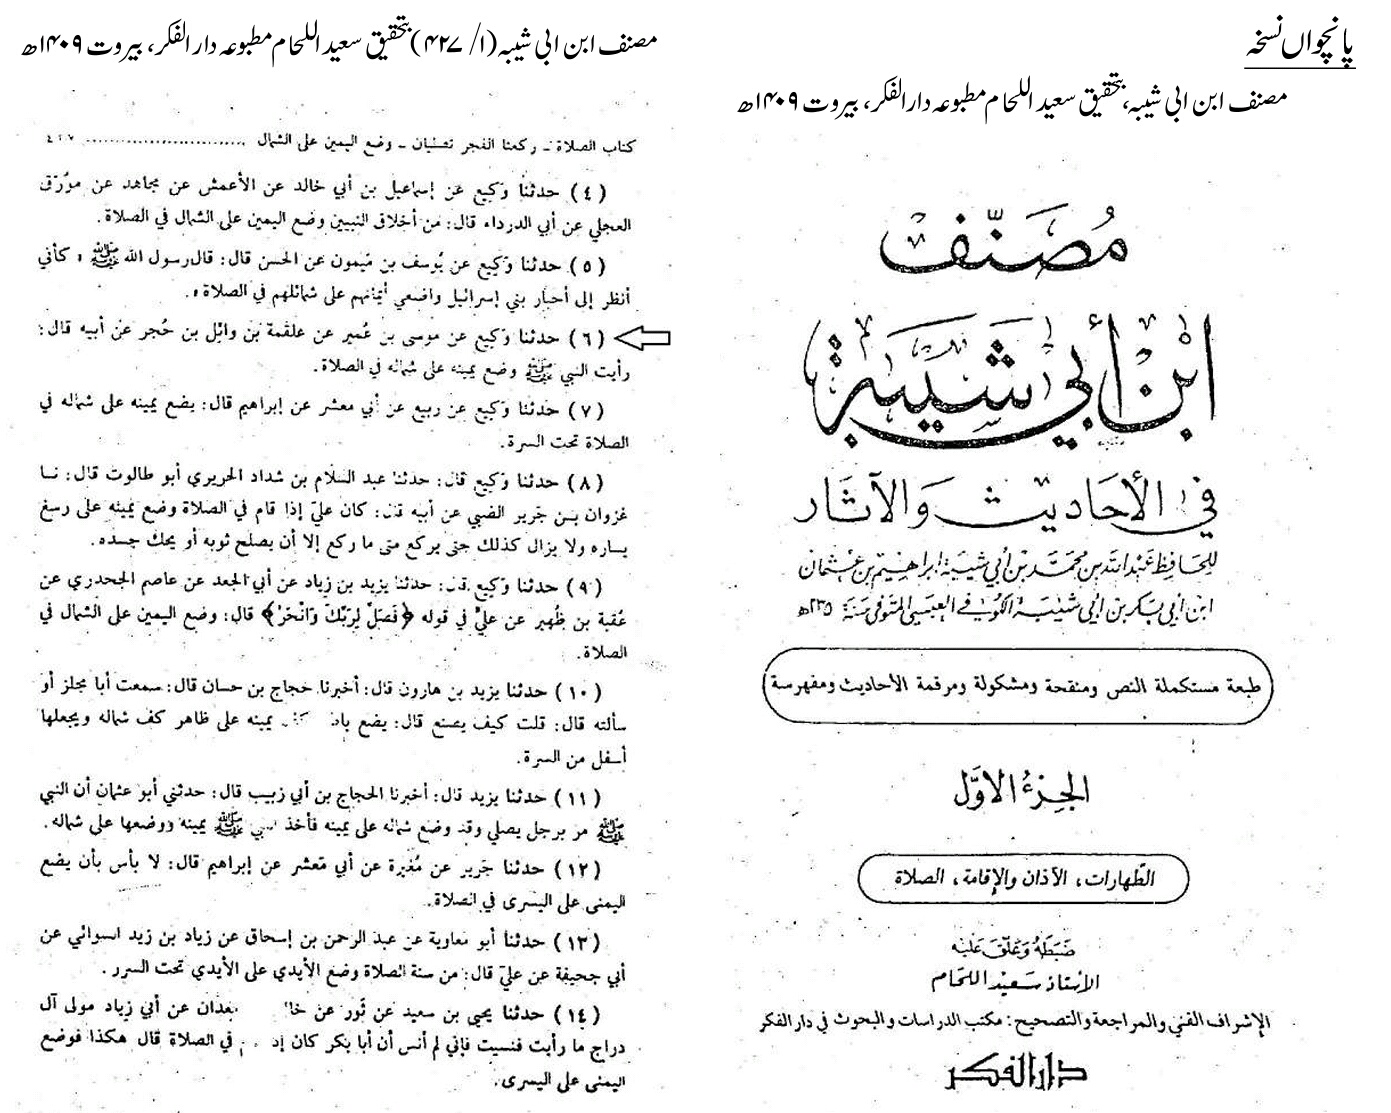 پانچواں نسخہ
مصنف ابن ابی شیبہ، بتحقیق سعید اللحام مطبوعہ دار الفکر، بیروت ۱۴۰۹ھ
مُصَنَّف
ابْنُ أَبِي شَيْبَة
فِي الأَحَادِيثِ وَالآثَار
لِلحَافِظ عَبْدالله بن مُحَمَّد بن أَبِي شَيْبَة إبراهِيم بن عُثْمَان
ابْن أَبِي بَكْر بن أَبِي شَيْبَة الكُوفِي العَبْسِي المتَوفّى سَنَة ٢٣٥هـ
طبعة مستكملة النص ومنقحة ومشكولة ومرقمة الأحاديث ومفهرسة
الجزءُ الأوَّل
الطّهارات، الآذان والإقامة، الصلاة
ضَبَطَهُ وَعَلَّقَ عَلَيْه
الأستاذ سَعيد اللحّام
الإشراف الفني والمراجعة والتصحيح: مكتب الدراسات والبحوث في دار الفكر
دار الفكر
مصنف ابن ابی شیبہ (۱/ ۴۲۷) بتحقیق سعید اللحام مطبوعہ دار الفکر، بیروت ۱۴۰۹ھ
كتاب الصلاة - ركعتا الفجر تصليان - وضع اليمين على الشمال .......................... ٤٢٧
(٤) حدثنا وكيع عن إسماعيل بن أبي خالد عن الأعمش عن مجاهد عن مورّق
العجلي عن أبي الدرداء قال: من أخلاق النبيين وضع اليمين على الشمال في الصلاة.
(٥) حدثنا وكيع عن يُوسف بن ميمون عن الحسن قال: قال رسول الله ﷺ «كأني
أنظر إلى أحبار بني إسرائيل واضعي أيمانهم على شمائلهم في الصلاة».
(٦) حدثنا وكيع عن موسى بن عُمير عن علقمة بن وائل بن حُجر عن أبيه قال:
رأيت النبي ﷺ وضع يمينه على شماله في الصلاة.
(٧) حدثنا وكيع عن ربيع عن أبي معشر عن إبراهيم قال: يضع يمينه على شماله في
الصلاة تحت السرة.
(٨) حدثنا وكيع قال: حدثنا عبد السلام بن شداد الحريري أبو طالوت قال: نا
غزوان بن جرير الضبي عن أبيه قال: كان عليّ إذا قام في الصلاة وضع يمينه على رسغ
يساره ولا يزال كذلك حتى يركع متى ما ركع إلا أن يصلح ثوبه أو يحك جسده.
(٩) حدثنا وكيع قال: حدثنا يزيد بن زياد عن أبي الجعد عن عاصم الجحدري عن
عُقبة بن ظُهير عن عليٍّ في قوله ﴿فَصَلِّ لِرَبِّكَ وَانْحَرْ﴾ قال: وضع اليمين على الشمال في
الصلاة.
(١٠) حدثنا يزيد بن هارون قال: أخبرنا حجاج بن حسان قال: سمعت أبا مجلز أو
سألته قال: قلت كيف يصنع قال: يضع يمينه على ظاهر كف شماله ويجعلها
أسفل من السرة.
(١١) حدثنا يزيد قال: أخبرنا الحجاج بن أبي زبيب قال: حدثني أبو عثمان أن النبي
ﷺ مر برجل يصلي وقد وضع شماله على يمينه فأخذ النبي ﷺ يمينه فوضعها على شماله.
(١٢) حدثنا جرير عن مُغيرة عن أبي مَعشر عن إبراهيم قال: لا بأس بأن يضع
اليمنى على اليسرى في الصلاة.
(١٣) حدثنا أبو معاوية عن عبد الرحمن بن إسحاق عن زياد بن زيد السوائي عن
أبي جحيفة عن عليّ قال: من سنة الصلاة وضع الأيدي على الأيدي تحت السرر.
(١٤) حدثنا يحيى بن سعيد عن ثَور عن معدان عن أبي زياد مولى آل
دراج ما رأيت فنسيت فإني لم أنس أن أبا بكر كان في الصلاة قال هكذا فوضع
اليمنى على اليسرى.